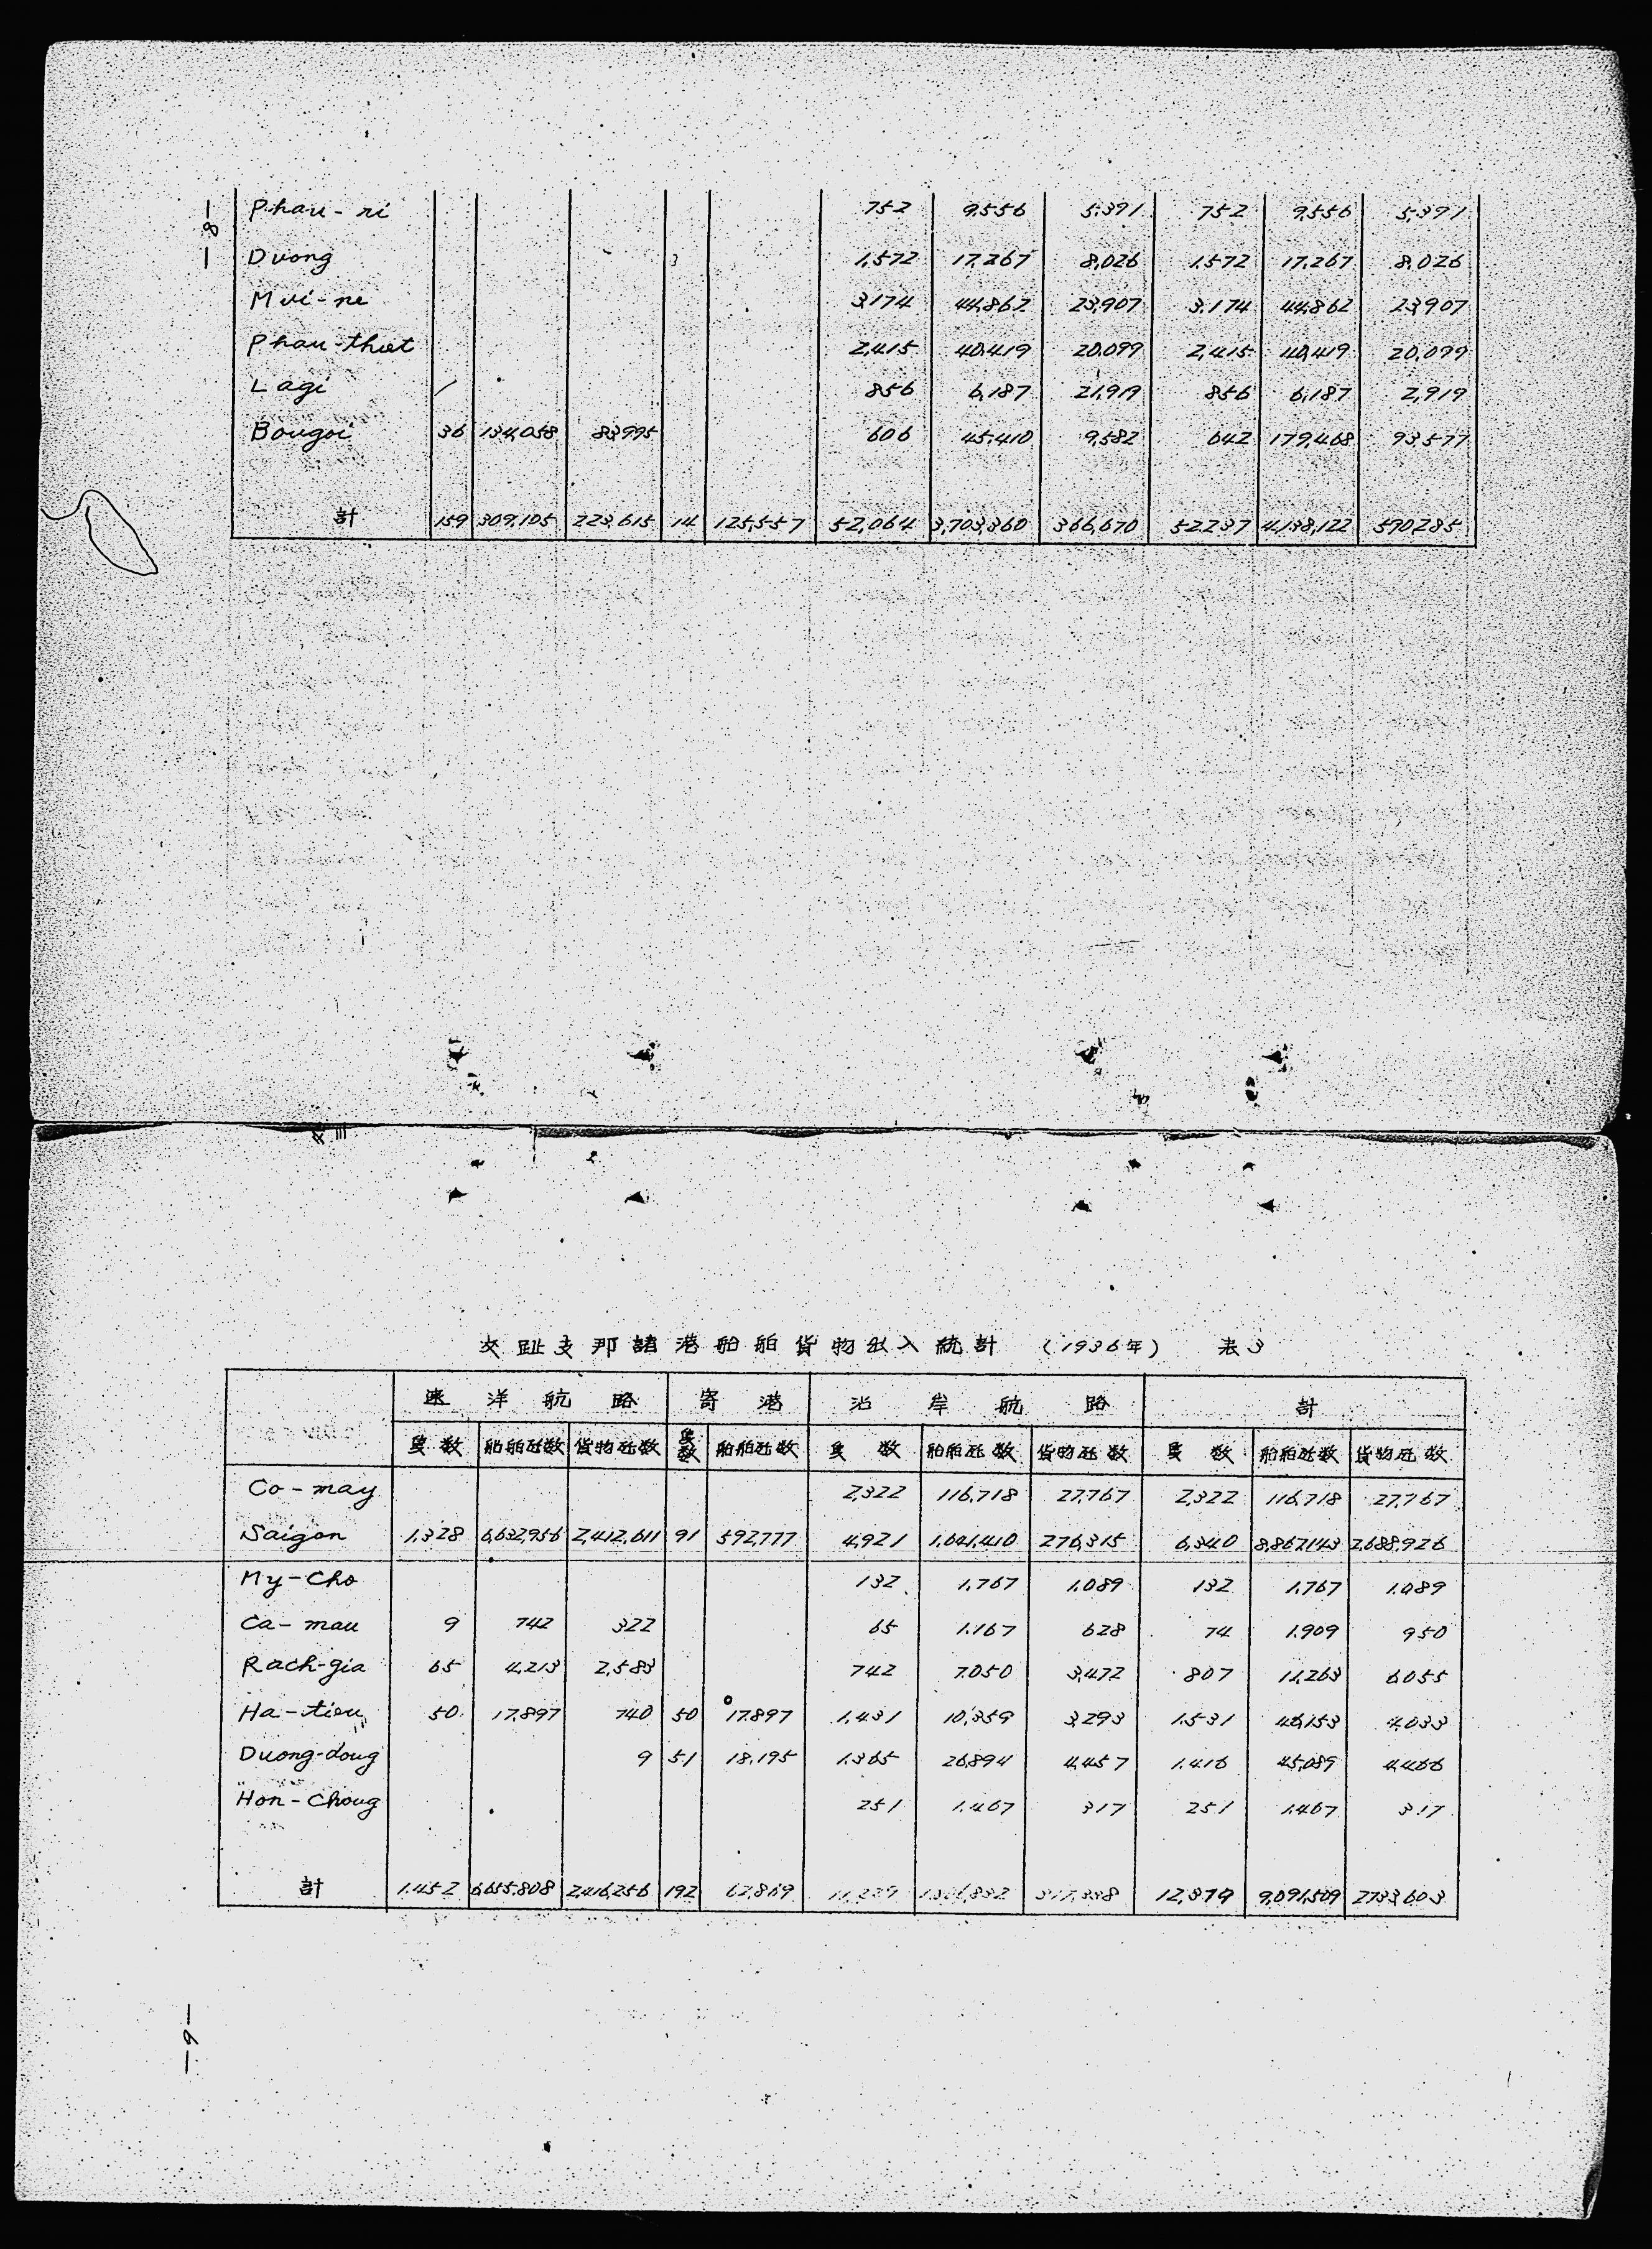 —8—
Phau-ri 752 9,556 5,391 752 9,556 5,391
Duong 1,572 17,267 8,026 1,572 17,267 8,026
Mui-ne 3,174 44,862 23,907 3,174 44,862 23,907
Phau-thiet 2,415 40,419 20,099 2,415 40,419 20,099
Lagi 856 6,187 21,919 856 6,187 2,919
Bougoi 36 134,058 83,995 606 45,410 9,582 642 179,468 93,577
計 159 309,105 223,615 14 125,557 52,064 3,703,360 366,670 52,237 4,138,122 590,285
交趾支那諸港船舶貨物出入統計 (1936年) 表3
遠洋航路 寄港 沿岸航路 計
隻数 船舶屯数 貨物屯数 隻数 船舶屯数 隻数 船舶屯数 貨物屯数 隻数 船舶屯数 貨物屯数
Co-may 2,322 116,718 27,767 2,322 116,718 27,767
Saigon 1,328 6,632,956 2,412,611 91 592,777 4,921 1,641,410 276,315 6,340 8,867,143 2,688,926
My-Cho 132 1,767 1,089 132 1,767 1,089
Ca-mau 9 742 322 65 1,167 628 74 1,909 950
Rach-gia 65 4,213 2,583 742 7,050 3,472 807 11,263 6,055
Ha-tien 50 17,897 740 50 17,897 1,431 10,359 3,293 1,531 46,153 4,033
Duong-doug 9 51 18,195 1,365 26,894 4,457 1,416 45,089 4,466
Hon-Choug 251 1,467 317 251 1,467 317
計 1,452 6,655,808 2,416,256 192 62,869 12,379 9,091,509 2,733,603
—9—